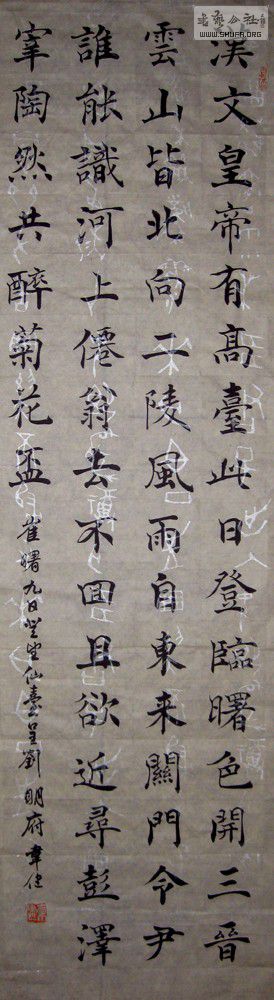 漢文皇帝有髙臺此日登臨曙色開三晉
雲山皆北向二陵風雨自東来關門令尹
誰能識河上僊翁去不回且欲近尋彭澤
宰陶然共醉菊花盃
崔曙九日登望仙臺呈劉明府
公社
WWW.SHUFA.ORG